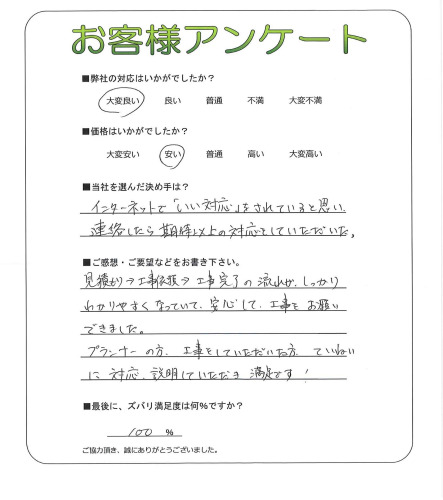 お客様アンケート
■弊社の対応はいかがでしたか?
大変良い 良い 普通 不満 大変不満
■価格はいかがでしたか?
大変安い 安い 普通 高い 大変高い
■当社を選んだ決め手は?
インターネットで「いい対応」をされていると思い、
連絡したら期待以上の対応をしていただいた。
■ご感想・ご要望などをお書き下さい。
見積り→工事依頼→工事完了の流れが、しっかり
わかりやすくなっていて、安心して、工事をお願い
できました。
プランナーの方、工事をしていただいた方、ていねい
に対応、説明していただき満足です!
■最後に、ズバリ満足度は何%ですか?
100 %
ご協力頂き、誠にありがとうございました。